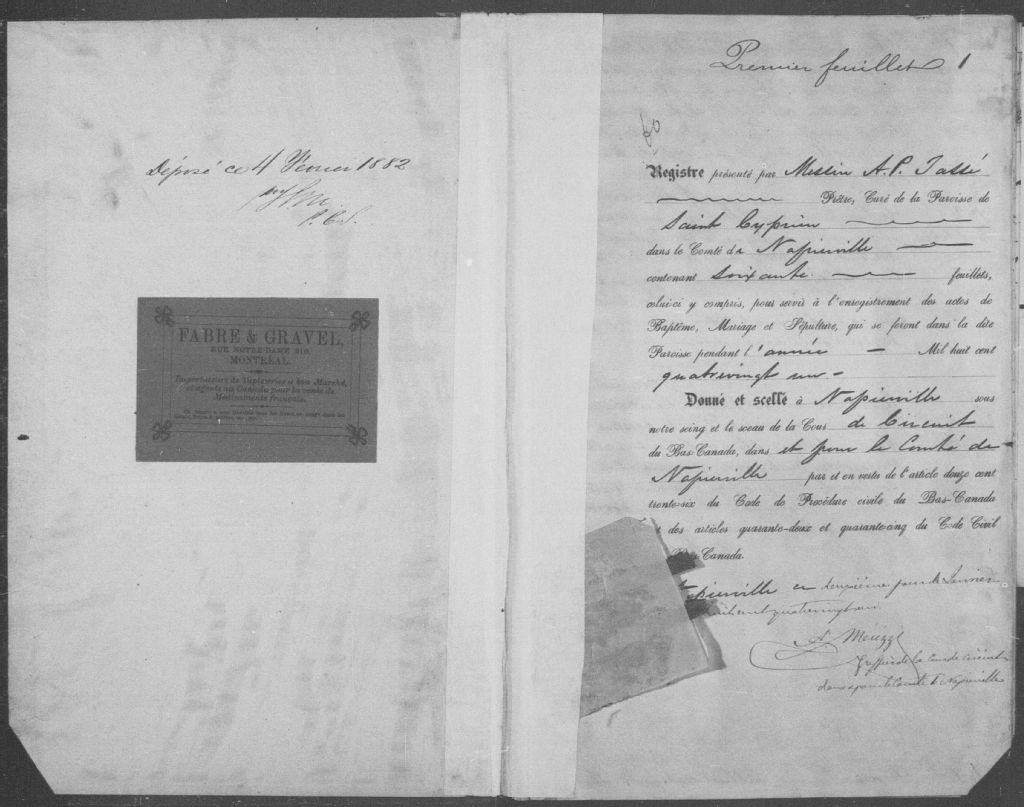 Déposé ce 4 Février 1882
P.C.S.
FABRE & GRAVEL,
RUE NOTRE-DAME 219,
MONTREAL.
Importateurs de Tapisseries à bon Marché,
et agents au Canada pour la vente de
Médicaments français.
Premier feuillet 1
60
Registre présenté par Messire A. P. Tassé
Prêtre, Curé de la Paroisse de
Saint Cyprien
dans le Comté de Napierville
contenant soixante feuillets,
celui-ci y compris, pour servir à l'enregistrement des actes de
Baptême, Mariage et Sépulture, qui se feront dans la dite
Paroisse pendant l'année Mil huit cent
quatrevingt un -
Donné et scellé à Napierville sous
notre seing et le sceau de la Cour de Circuit
du Bas-Canada, dans et pour le Comté de
Napierville par et en vertu de l'article douze cent
trente-six du Code de Procédure civile du Bas-Canada
des articles quarante-deux et quarante-cinq du Code Civil
Bas-Canada.
Napierville ce deuxième jour de Janvier
huit cent quatrevingt un.
Greffier de la Cour de Circuit
dans & pour le Comté de Napierville